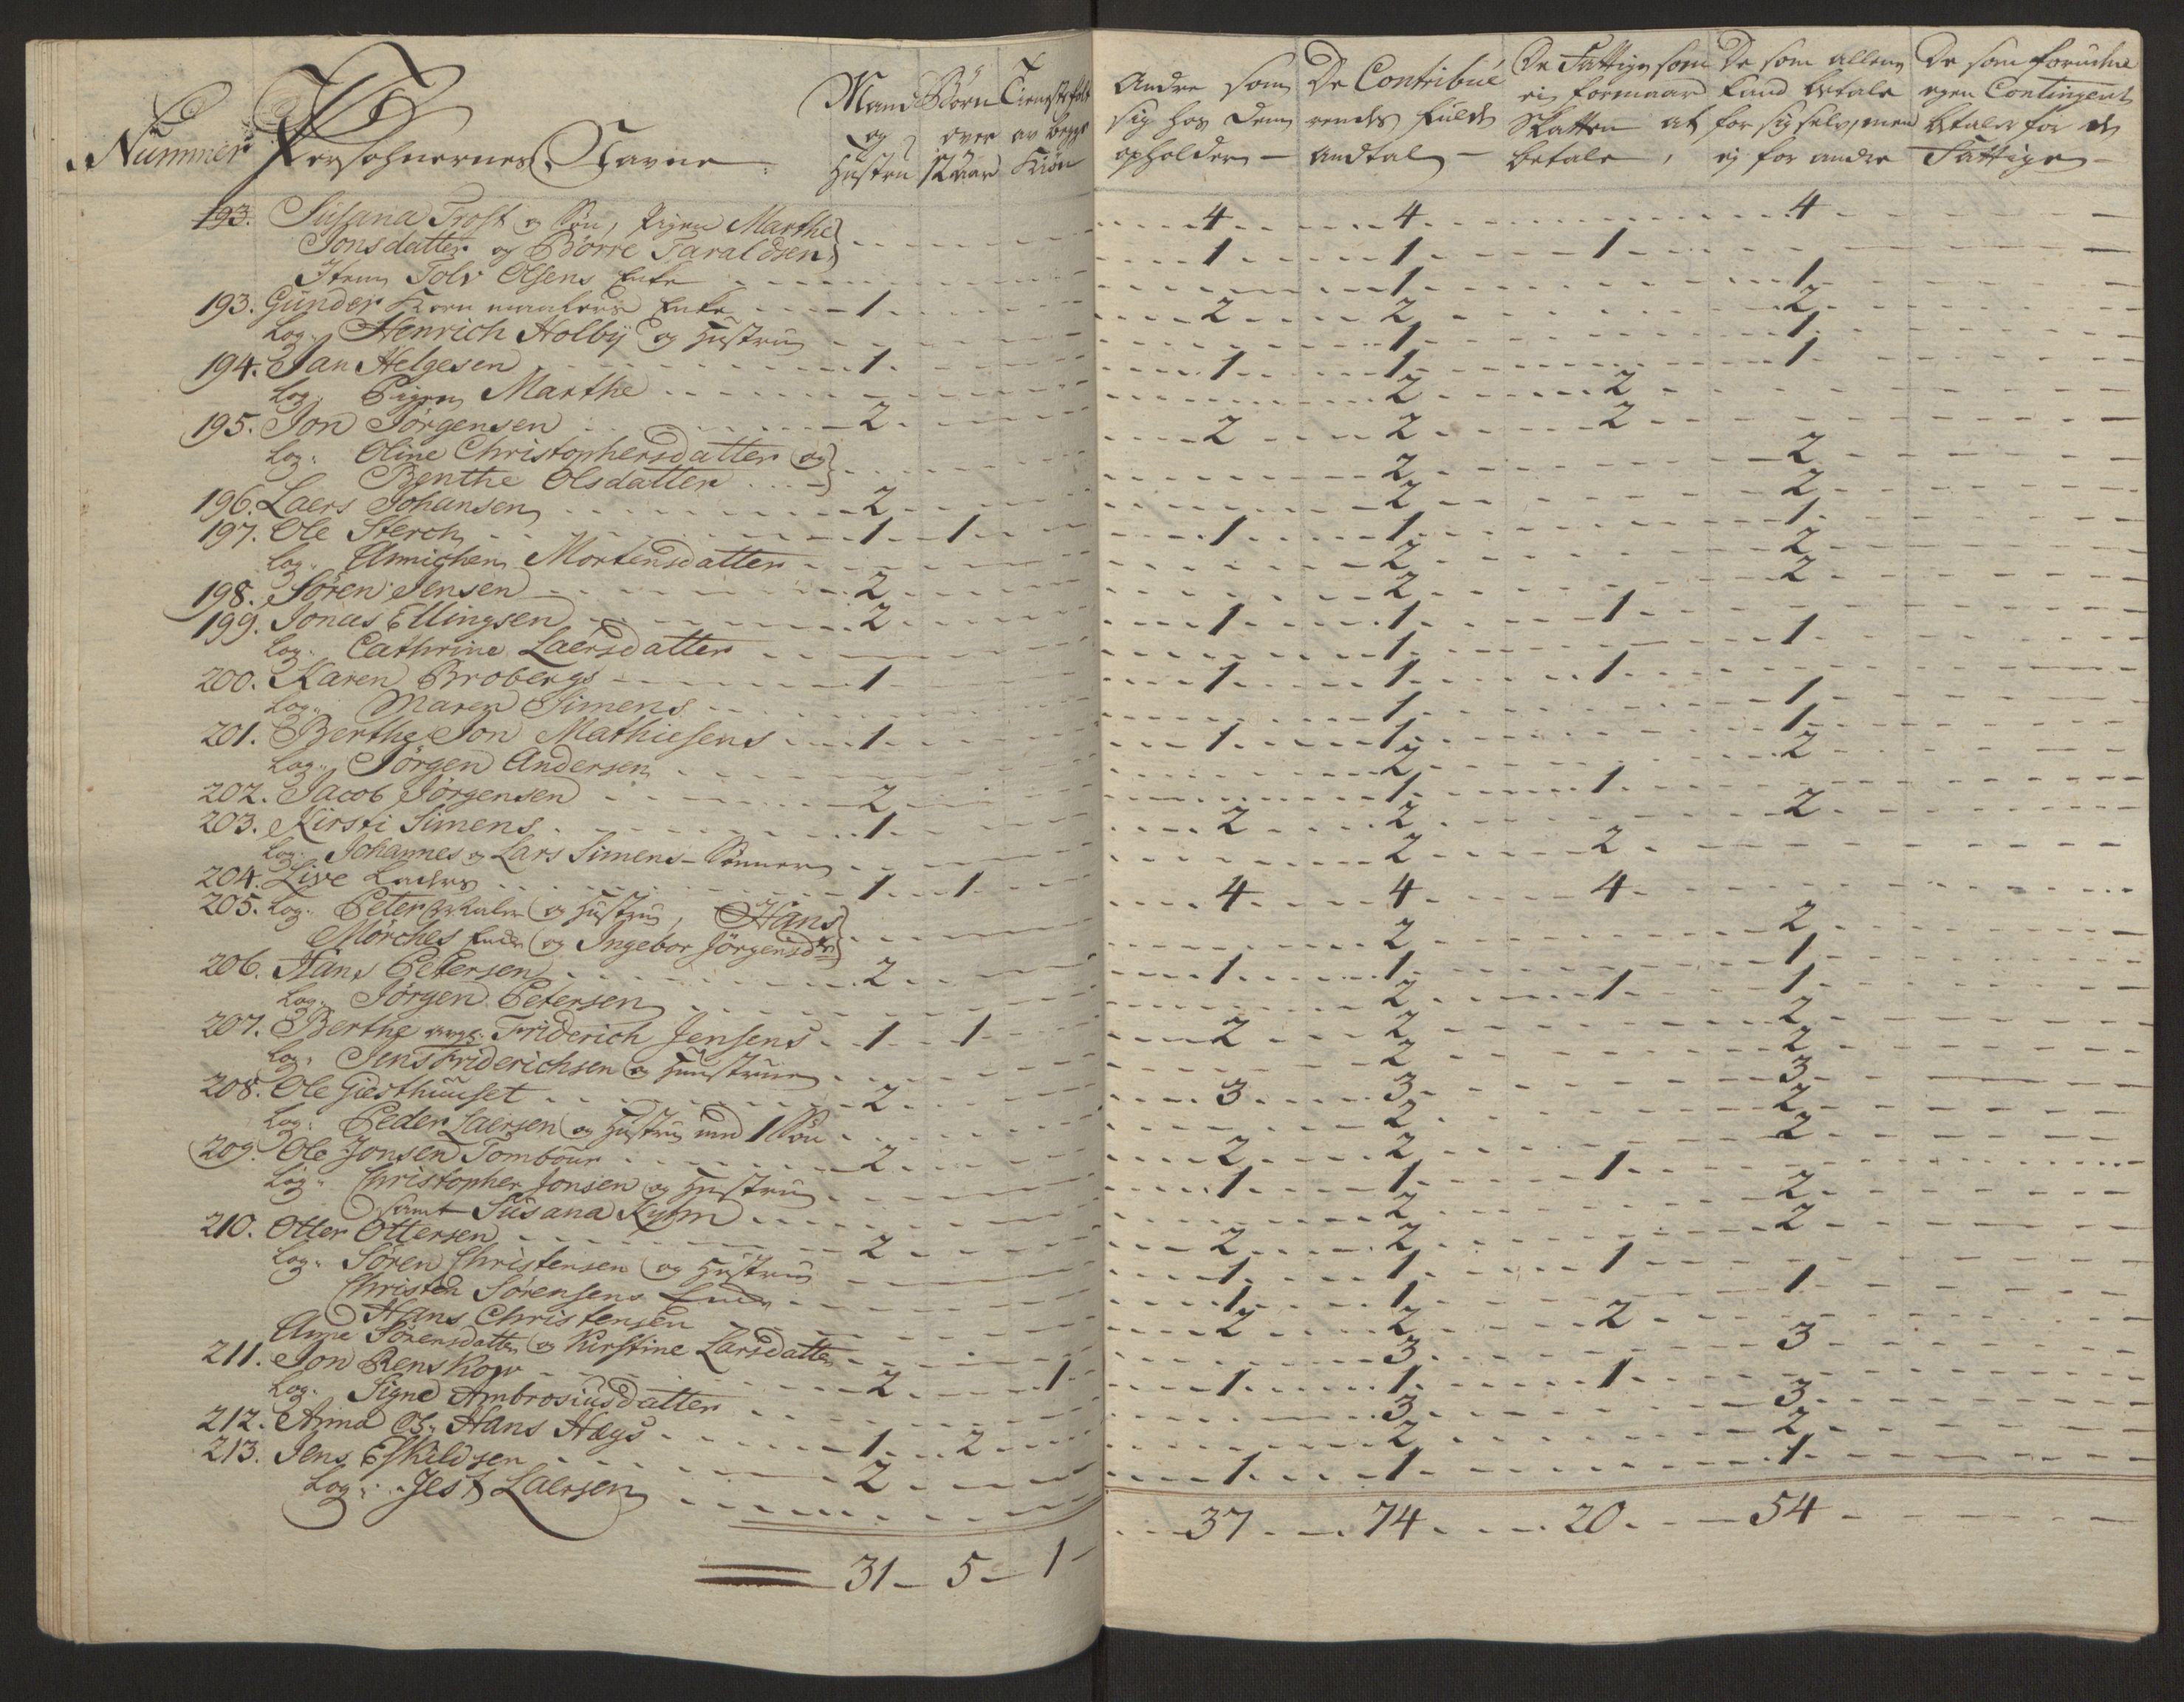 Nummer Persohnernes Navne. Mand og Hustru Børn over 12 aar Tienestefolk av begge Kiøn
193. Susana Trost og Søn, Pigen Marthe
Jonsdatter og Børre Taraldsen
Item Tolv Olsens Enke
193. Gunder Enke 1
Log. Henrich Holbÿ og Hustru
194. Jan Helgesen 1
Log. Pigen Marthe
195. Jon Jørgensen 2
Log. Oline Christophersdatter og
Benthe Olsdatter
196. Laers Johansen 2
197. Ole Sterch 1 1
Log. Annichen Mortensdatter
198. Søren Jensen 2
199. Jonas Ellingsen 2
Log. Cathrine Laersdatter
200. Karen Brobergs 1
Log. Maren Simens
201. Berthe Jon Mathiesens 1
Log. Jørgen Andersen
202. Jacob Jørgensen 2
203. Kirsti Simens 1
Log. Johannes og Lars Simens Sønner
204. Live Laders 1 1
205. Log. Peter og Hustru, Hans
Mørches Enke og Ingebor Jørgensdtr
206. Hans Petersen 2
Log. Jørgen Petersen
207. Berthe Friderich Jensens 1 1
Log. Jens Friderichsen og Hunstrue
208. Ole Giesthuuset 2
Log. Peder Laersen og Hustru med 1 Søn
209. Ole Jonsen Tombour 2
Log. Christopher Jonsen og Hustru
samt Susana Rÿm
210. Otter Ottersen 2
Log. Søren Christensen og Hustru
Christen Sørensens Enke
Hans Christensen
Anne Sørensdatter og Kirstine Larsdatter
211. Jon Renskow 2 1
Log. Signe Ambrosiusdatter
212. Anna Hans Høgs 1 2
213. Jens Eskildsen 2
Log. Jest Laersen
31 5 1
Andre som sig hos dem opholder De Contribuerendes fulde Andtal De Fattige som ei formaar Skatten at betale, De som allene kand betale for sig selv, men ej for andre De som foruden egen Contingent betaler for de Fattige
4 4 4
1 1 1
1 1
2 2 2
1 1
1 1 1
2 2
2 2 2
2 2
2 2
1 1 1
2 2
2 2
1 1 1
1 1
1 1 1
1 1
1 1 1
2 2
1 1
2 2 2
2 2
4 4 4
2 2
1 1 1
2 1 1
2 2 2
2 2
3 3 3
2 2
2 2 2
1 1 1
2 2
2 2 2
1 1 1
1 1 1
2 2 2
3 3
1 1 1
3 3
2 2
1 1 1
37 74 20 54